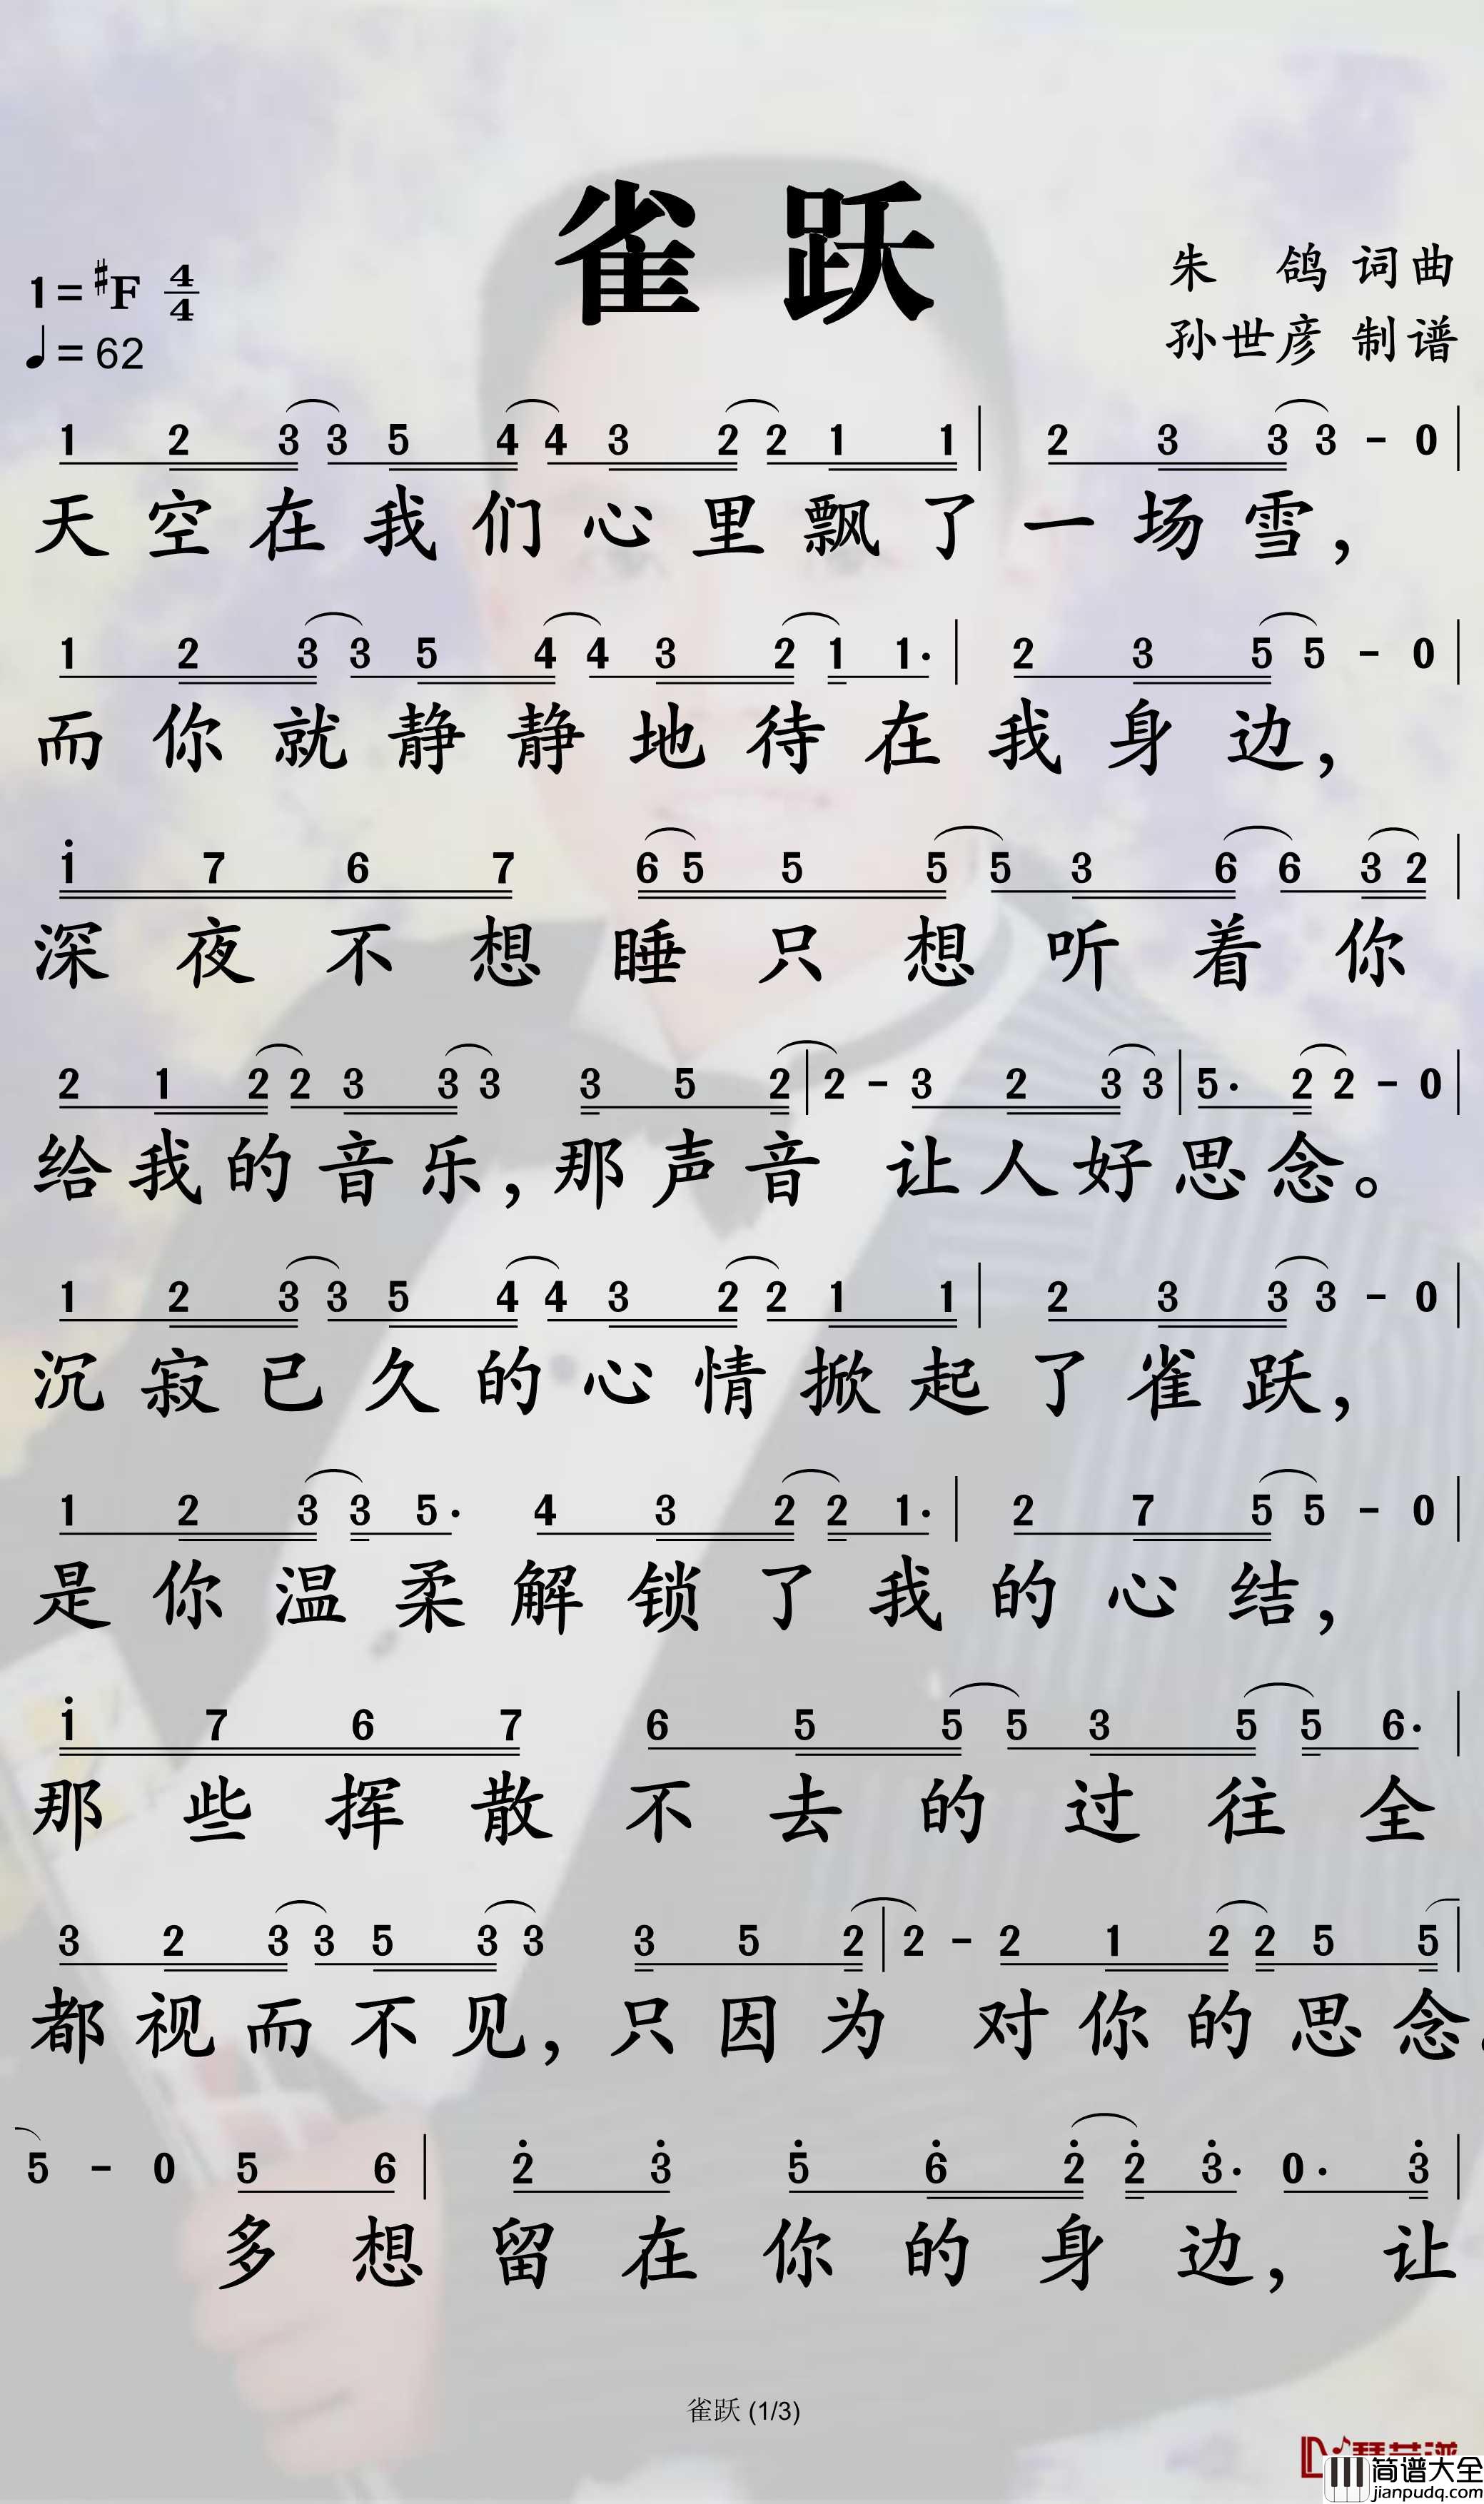 雀跃
朱 鸽 词曲
孙世彦 制谱
1=#F 4/4
♩=62
1 2 3 3 5 4 4 3 2 2 1 1 | 2 3 3 3 - 0 |
天空在我们心里飘了一场雪，
1 2 3 3 5 4 4 3 2 1 1· | 2 3 5 5 - 0 |
而你就静静地待在我身边，
i 7 6 7 6 5 5 5 5 3 6 6 3 2 |
深夜不想睡只想听着你
2 1 2 2 3 3 3 3 5 2 | 2 - 3 2 3 3 | 5· 2 2 - 0 |
给我的音乐，那声音 让人好思念。
1 2 3 3 5 4 4 3 2 2 1 1 | 2 3 3 3 - 0 |
沉寂已久的心情掀起了雀跃，
1 2 3 3 5· 4 3 2 2 1· | 2 7 5 5 - 0 |
是你温柔解锁了我的心结，
i 7 6 7 6 5 5 5 3 5 5 6· |
那些挥散不去的过往全
3 2 3 3 5 3 3 3 5 2 | 2 - 2 1 2 2 5 5 |
都视而不见，只因为 对你的思念。
5 - 0 5 6 | 2̇ 3̇ 5̇ 6̇ 2̇ 2̇ 3̇· 0· 3̇ |
多想留在你的身边，让
雀跃 (1/3)
简谱大全
jianpudq.com